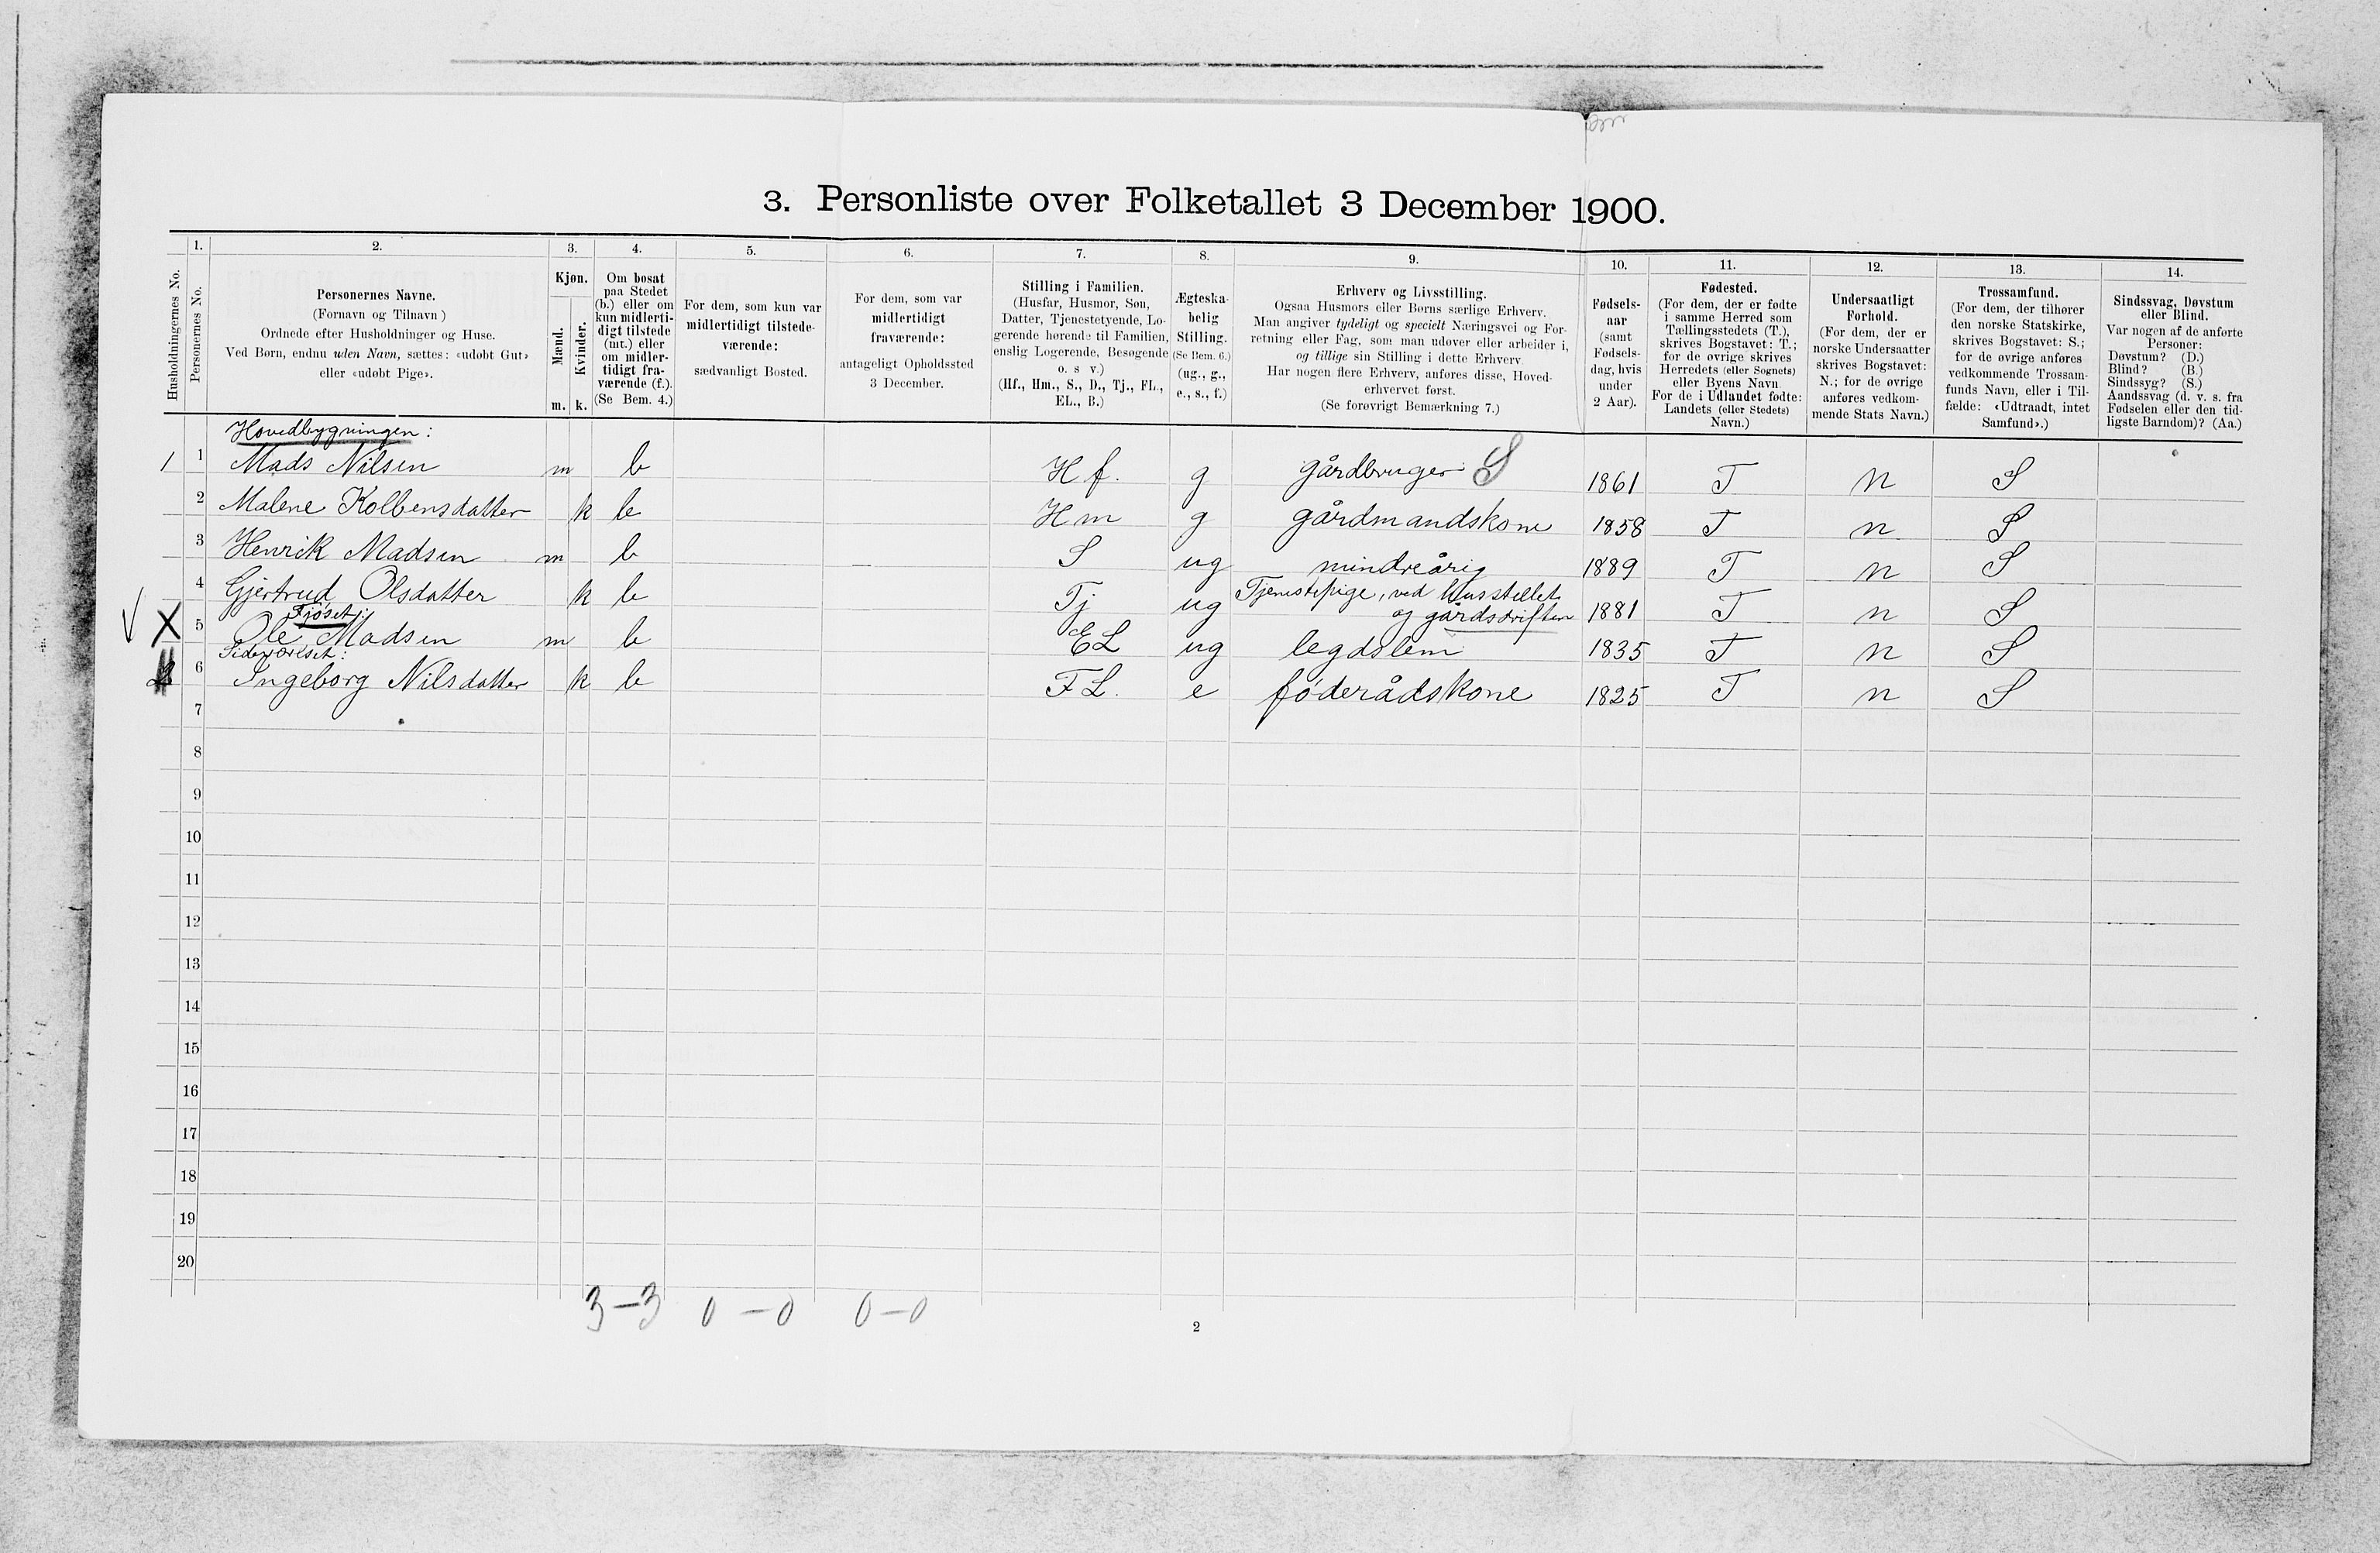 3. Personliste over Folketallet 3 December 1900.
1. 2. 3. 4. 5. 6. 7. 8. 9. 10. 11. 12. 13. 14.
Husholdningernes No.
Personernes No.
Personernes Navne.
(Fornavn og Tilnavn )
Ordnede efter Husholdninger og Huse.
Ved Børn, endnu uden Navn, sættes: «udøbt Gut»
eller «udøbt Pige».
Kjøn.
Mænd.
Kvinder.
m. k.
Om bosat
paa Stedet
(b.) eller om
kun midlerti-
digt tilstede
(mt.) eller
om midler-
tidigt fra-
værende (f.).
(Se Bem. 4.)
For dem, som kun var
midlertidigt tilstede-
værende:
sædvanligt Bosted.
For dem, som var
midlertidigt
fraværende:
antageligt Opholdssted
3 December.
Stilling i Familien.
(Husfar, Husmor, Søn,
Datter, Tjenestetyende, Lo-
gerende hørende til Familien,
enslig Logerende, Besøgende
o. s v.)
(Hf., Hm., S., D., Tj., FL.,
EL., B.)
Ægteska-
belig
Stilling.
(Se Bem. 6.)
(ug., g.,
e., s., f.)
Erhverv og Livsstilling.
Ogsaa Husmors eller Børns særlige Erhverv.
Man angiver tydeligt og specielt Næringsvei og For-
retning eller Fag, som man udøver eller arbeider i,
og tillige sin Stilling i dette Erhverv.
Har nogen flere Erhverv, anføres disse, Hoved-
erhvervet først.
(Se forøvrigt Bemærkning 7.)
Fødsels-
aar
(samt
Fødsels-
dag, hvis
under
2 Aar).
Fødested.
(For dem, der er fødte
i samme Herred som
Tællingsstedets (T.),
skrives Bogstavet: T.;
for de øvrige skrives
Herredets (eller Sognets)
eller Byens Navn.
For de i Udlandet fødte:
Landets (eller Stedets)
Navn.)
Undersaatligt
Forhold.
(For dem, der er
norske Undersaatter
skrives Bogstavet:
N.; for de øvrige
anføres vedkom-
mende Stats Navn.)
Trossamfund.
(For dem, der tilhører
den norske Statskirke,
skrives Bogstavet: S.;
for de øvrige anføres
vedkommende Trossam-
funds Navn, eller i Til-
fælde: «Udtraadt, intet
Samfund».)
Sindssvag, Døvstum
eller Blind.
Var nogen af de anførte
Personer:
Døvstum? (D.)
Blind? (B.)
Sindssyg? (S.)
Aandssvag (d. v. s. fra
Fødselen eller den tid-
ligste Barndom)? (Aa.)
Hovedbygningen:
1 1 Mads Nilsen m b Hf. g gårdbruger S 1861 T n S
2 Malene Kolbensdatter k b Hm g gårdmandskone 1858 T n S
3 Henrik Madsen m b — S ug mindreårig 1889 T n S
4 Gjertrud Olsdatter k b Tj ug Tjenestepige, ved Husstellet
og gårdsdriften 1881 T n S
Fjøset:
X 5 Ole Madsen m b EL ug legdslem 1835 T n S
6 Ingeborg Nilsdatter k b FL. e føderådskone 1825 T n S
7
8
9
10
11
12
13
14
15
16
17
18
19
20
3-3 0-0 0-0
2